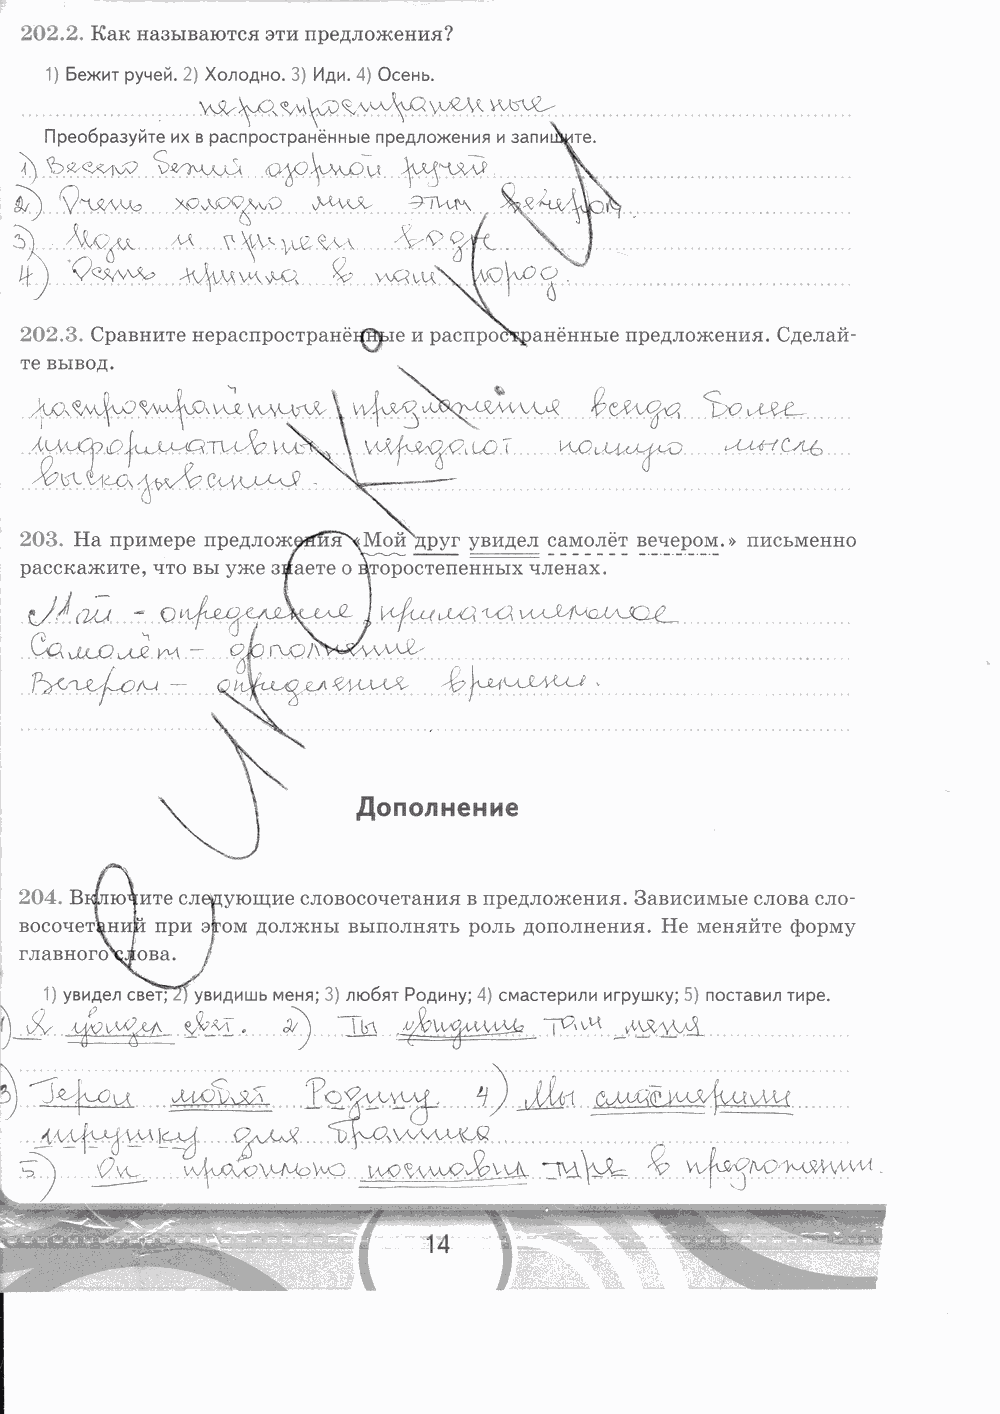 202.2. Как называются эти предложения?
1) Бежит ручей. 2) Холодно. 3) Иди. 4) Осень.
нераспространенные
Преобразуйте их в распространённые предложения и запишите.
1) Весело бежит озорной ручей.
2) Очень холодно мне этим вечером.
3) Иди и принеси воды.
4) Осень пришла в наш город.
202.3. Сравните нераспространённые и распространённые предложения. Сделай-
те вывод.
распространённые предложения всегда более
информативны, передают полную мысль
высказывания.
203. На примере предложения «Мой друг увидел самолёт вечером.» письменно
расскажите, что вы уже знаете о второстепенных членах.
Мой - определение, прилагательное
Самолёт - дополнение
Вечером - определение времени.
Дополнение
204. Включите следующие словосочетания в предложения. Зависимые слова сло-
восочетаний при этом должны выполнять роль дополнения. Не меняйте форму
главного слова.
1) увидел свет; 2) увидишь меня; 3) любят Родину; 4) смастерили игрушку; 5) поставил тире.
1) Я увидел свет. 2) Ты увидишь там меня
3) Герои любят Родину. 4) Мы смастерили
игрушку для братика
5) Он правильно поставил тире в предложении.
14
еуроки.ки